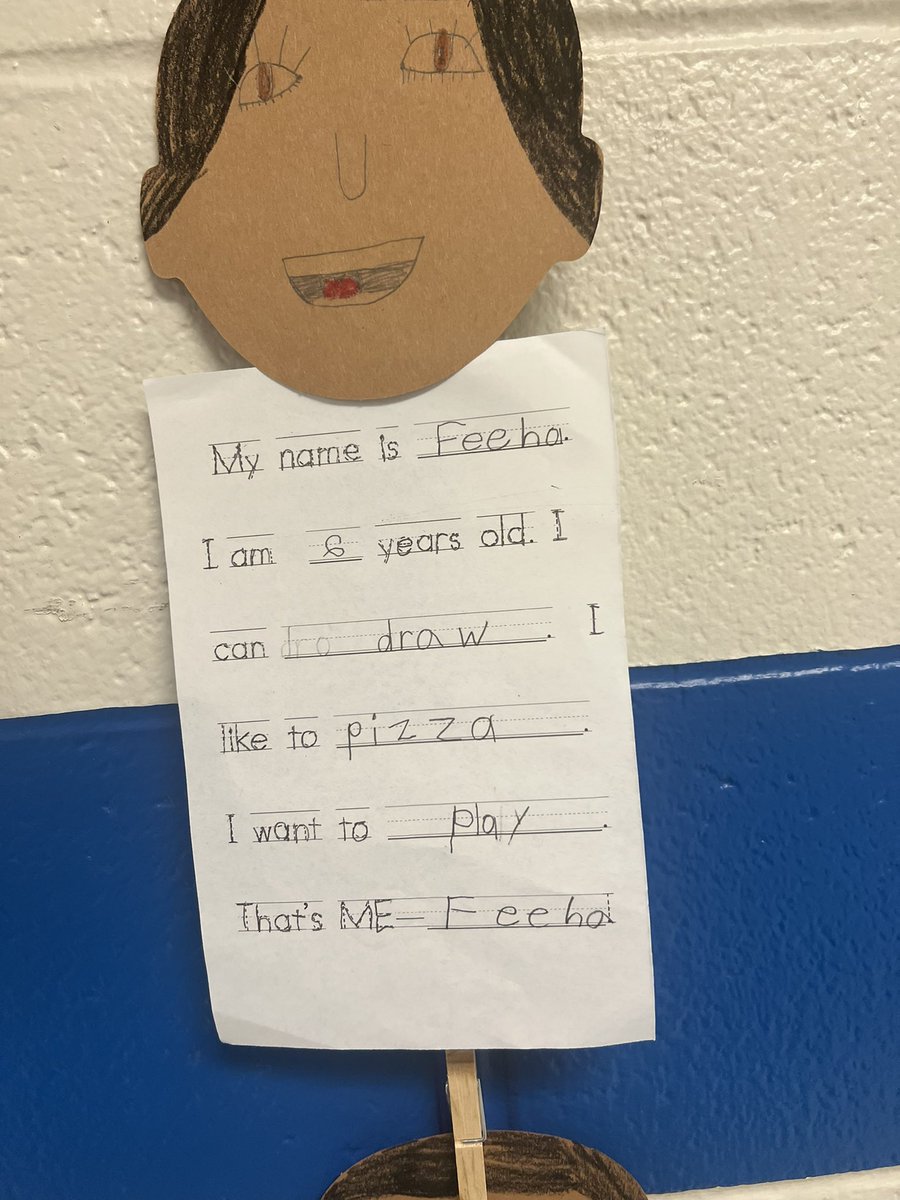 My name is Feeha.
I am 6 years old. I
can draw. I
like to pizza.
I want to play.
That's ME— Feeha!